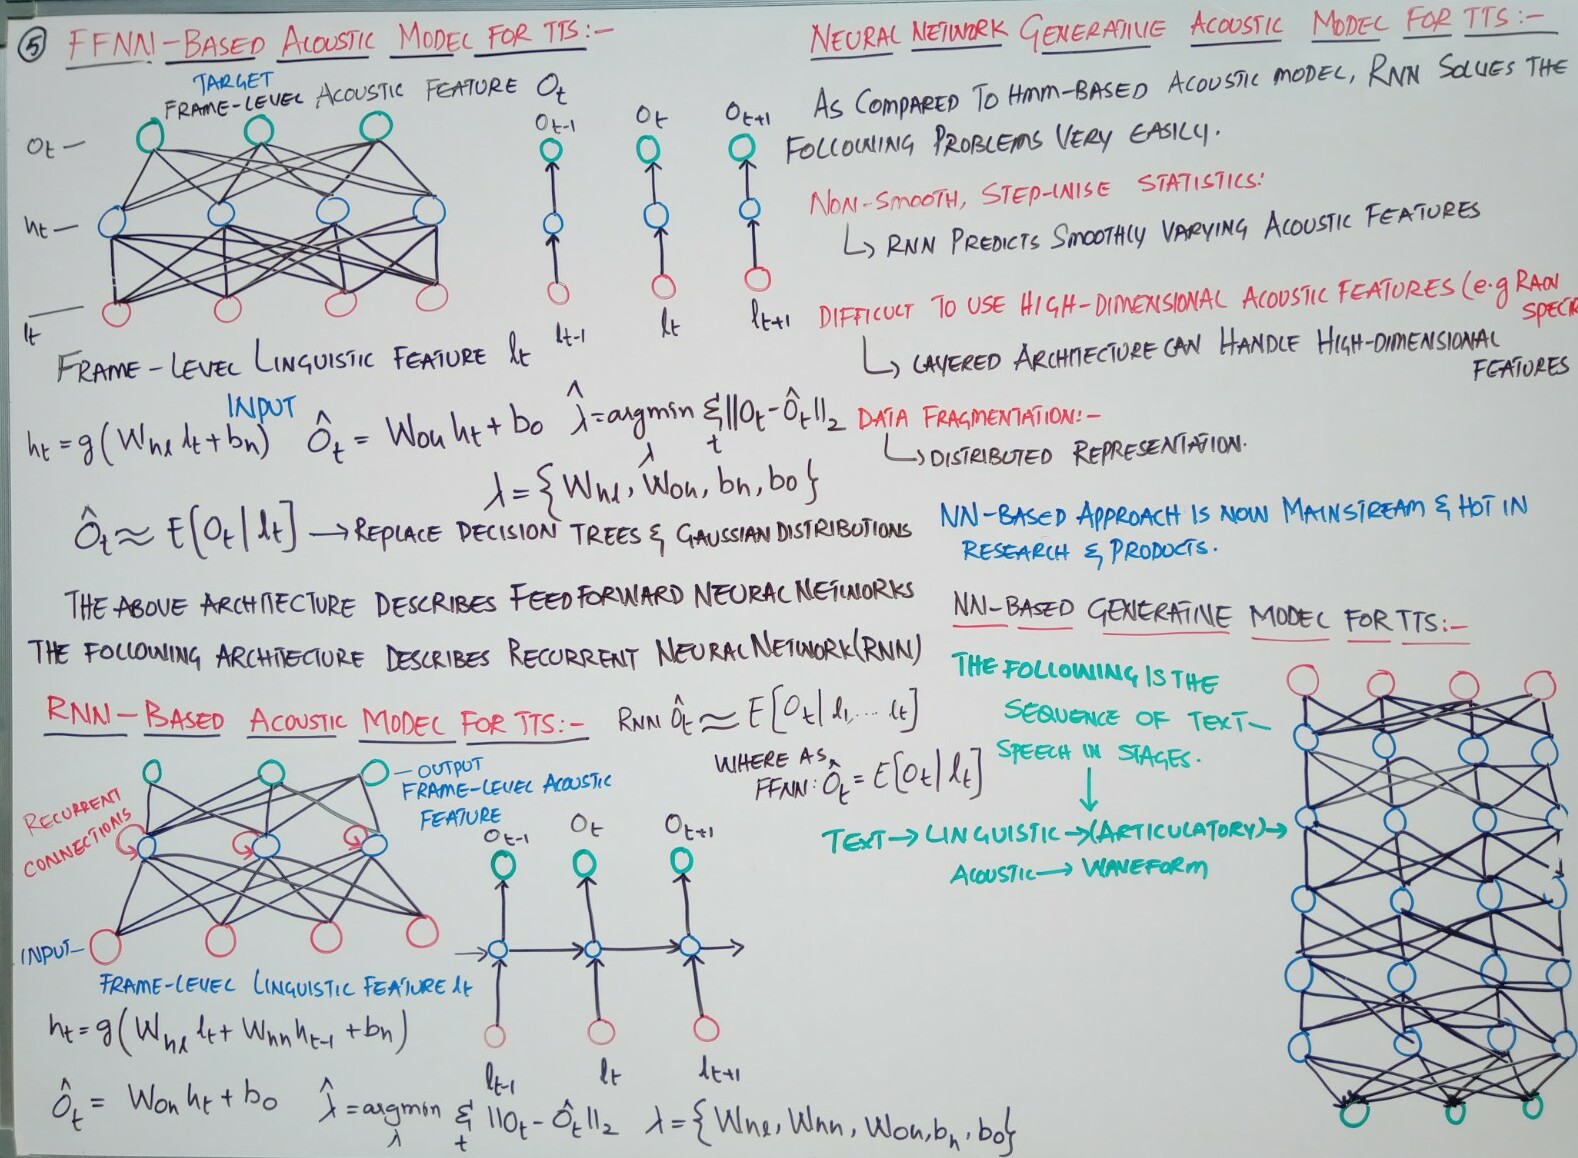 5 FFNN-BASED ACOUSTIC MODEL FOR TTS:-
TARGET
FRAME-LEVEL ACOUSTIC FEATURE Ot
Ot-1 Ot Ot+1
Ot
ht
lt
lt-1 lt lt+1
FRAME-LEVEL LINGUISTIC FEATURE lt
INPUT
ht = g(Whl lt + bh) Ôt = Woh ht + bo λ̂ = argmin λ Σ t ||Ot - Ôt||2
λ = {Whl, Woh, bh, bo}
Ôt ≈ E[Ot | lt] → REPLACE DECISION TREES & GAUSSIAN DISTRIBUTIONS
THE ABOVE ARCHITECTURE DESCRIBES FEED FORWARD NEURAL NETWORKS
THE FOLLOWING ARCHITECTURE DESCRIBES RECURRENT NEURAL NETWORK (RNN)
RNN-BASED ACOUSTIC MODEL FOR TTS:-
RNN Ôt ≈ E[Ot | l1, .... lt]
WHERE AS,
FFNN: Ôt = E[Ot | lt]
OUTPUT
FRAME-LEVEL ACOUSTIC
FEATURE
RECURRENT
CONNECTIONS
INPUT
FRAME-LEVEL LINGUISTIC FEATURE lt
Ot-1 Ot Ot+1
lt-1 lt lt+1
ht = g(Whl lt + Whh ht-1 + bh)
Ôt = Woh ht + bo λ̂ = argmin λ Σ t ||Ot - Ôt||2 λ = {Whl, Whh, Woh, bh, bo}
NEURAL NETWORK GENERATIVE ACOUSTIC MODEL FOR TTS:-
AS COMPARED TO HMM-BASED ACOUSTIC MODEL, RNN SOLVES THE
FOLLOWING PROBLEMS VERY EASILY.
NON-SMOOTH, STEP-WISE STATISTICS:
↳ RNN PREDICTS SMOOTHLY VARYING ACOUSTIC FEATURES
DIFFICULT TO USE HIGH-DIMENSIONAL ACOUSTIC FEATURES (e.g RAW
SPECR
↳ LAYERED ARCHITECTURE CAN HANDLE HIGH-DIMENSIONAL
FEATURES
DATA FRAGMENTATION:-
↳ DISTRIBUTED REPRESENTATION.
NN-BASED APPROACH IS NOW MAINSTREAM & HOT IN
RESEARCH & PRODUCTS.
NN-BASED GENERATIVE MODEL FOR TTS:-
THE FOLLOWING IS THE
SEQUENCE OF TEXT-
SPEECH IN STAGES.
TEXT → LINGUISTIC → (ARTICULATORY) →
ACOUSTIC → WAVEFORM